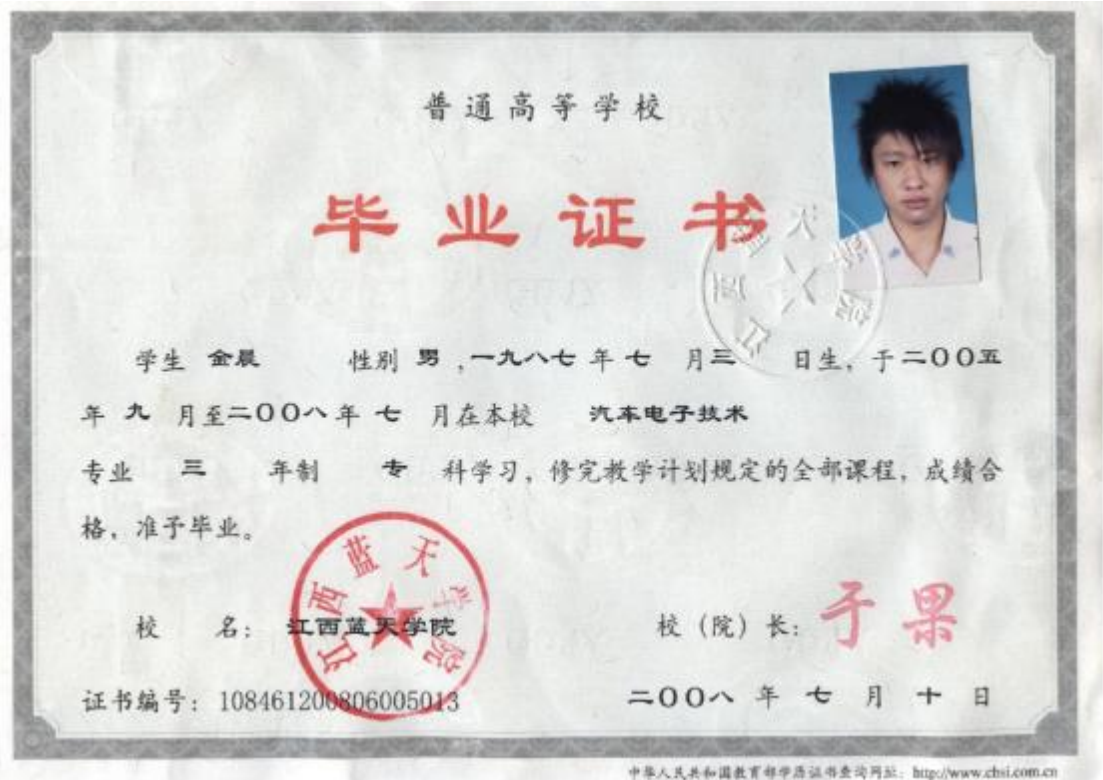 普通高等学校
毕业证书
学生 金晨 性别 男 ,一九八七 年 七 月 三 日生, 于 二〇〇五
年 九 月至 二〇〇八 年 七 月在本校 汽车电子技术
专业 三 年制 专 科学习, 修完教学计划规定的全部课程, 成绩合
格, 准予毕业。
江西蓝天学院
江西蓝天学院
校 名: 江西蓝天学院
校(院)长: 于果
证书编号: 108461200806005013
二〇〇八 年 七 月 十 日
中华人民共和国教育部学历证书查询网址: http://www.chsi.com.cn